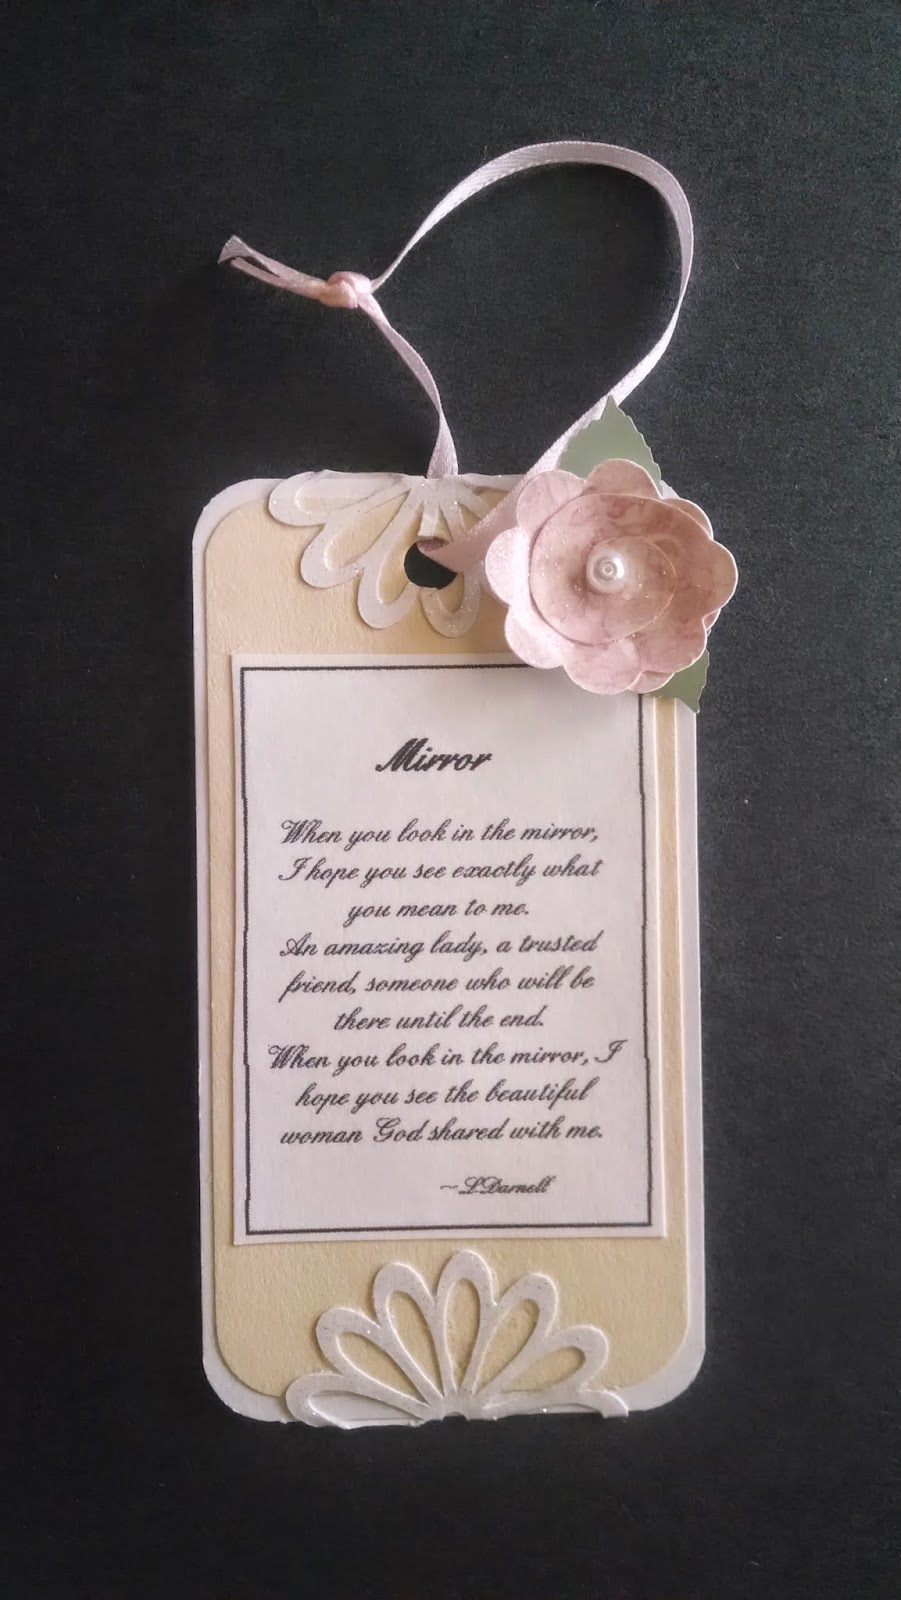 Mirror
When you look in the mirror,
I hope you see exactly what
you mean to me.
An amazing lady, a trusted
friend, someone who will be
there until the end.
When you look in the mirror, I
hope you see the beautiful
woman God shared with me.
~LDarnell